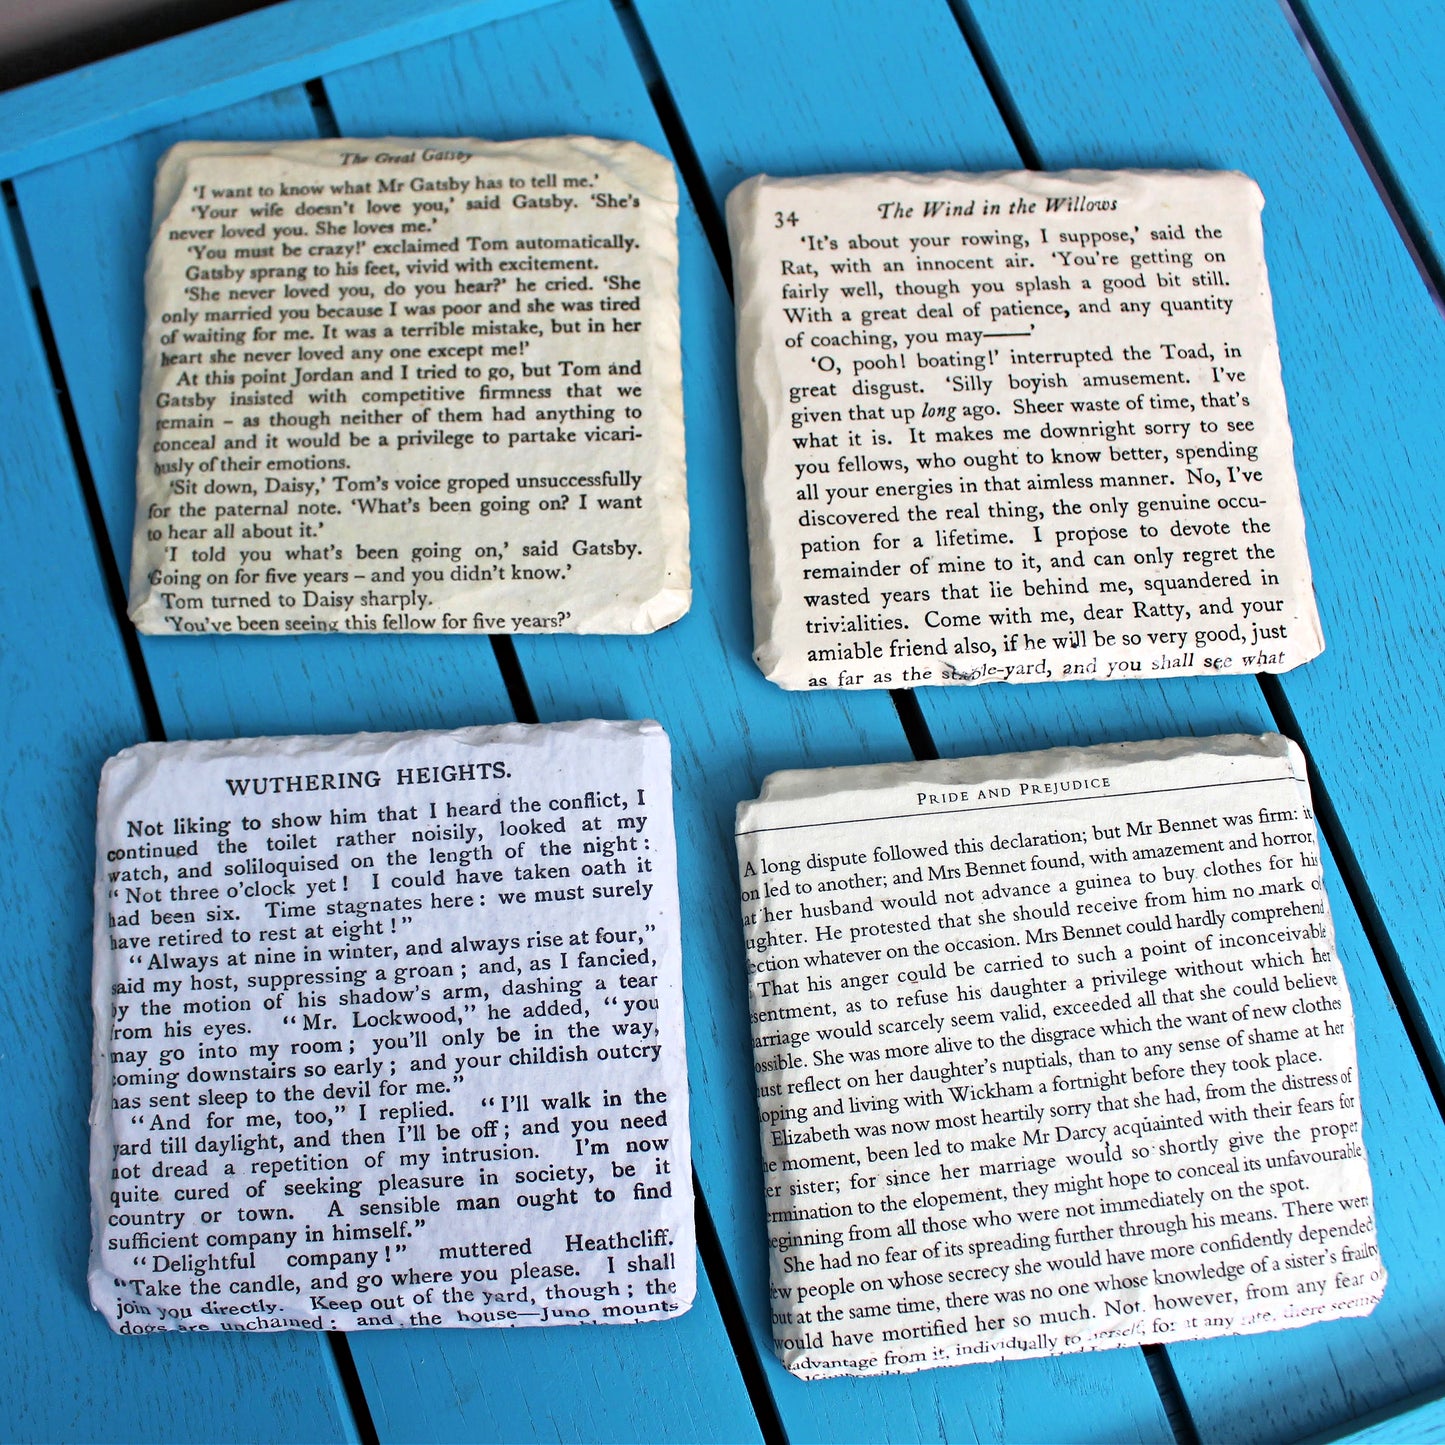 The Great Gatsby
'I want to know what Mr Gatsby has to tell me.'
'Your wife doesn't love you,' said Gatsby. 'She's
never loved you. She loves me.'
'You must be crazy!' exclaimed Tom automatically.
Gatsby sprang to his feet, vivid with excitement.
'She never loved you, do you hear?' he cried. 'She
only married you because I was poor and she was tired
of waiting for me. It was a terrible mistake, but in her
heart she never loved any one except me!'
At this point Jordan and I tried to go, but Tom and
Gatsby insisted with competitive firmness that we
remain – as though neither of them had anything to
conceal and it would be a privilege to partake vicari-
ously of their emotions.
'Sit down, Daisy,' Tom's voice groped unsuccessfully
for the paternal note. 'What's been going on? I want
to hear all about it.'
'I told you what's been going on,' said Gatsby.
'Going on for five years – and you didn't know.'
Tom turned to Daisy sharply.
'You've been seeing this fellow for five years?'
34 The Wind in the Willows
'It's about your rowing, I suppose,' said the
Rat, with an innocent air. 'You're getting on
fairly well, though you splash a good bit still.
With a great deal of patience, and any quantity
of coaching, you may——'
'O, pooh! boating!' interrupted the Toad, in
great disgust. 'Silly boyish amusement. I've
given that up long ago. Sheer waste of time, that's
what it is. It makes me downright sorry to see
you fellows, who ought to know better, spending
all your energies in that aimless manner. No, I've
discovered the real thing, the only genuine occu-
pation for a lifetime. I propose to devote the
remainder of mine to it, and can only regret the
wasted years that lie behind me, squandered in
trivialities. Come with me, dear Ratty, and your
amiable friend also, if he will be so very good, just
as far as the stable-yard, and you shall see what
WUTHERING HEIGHTS.
Not liking to show him that I heard the conflict, I
continued the toilet rather noisily, looked at my
watch, and soliloquised on the length of the night:
"Not three o'clock yet! I could have taken oath it
had been six. Time stagnates here: we must surely
have retired to rest at eight!"
"Always at nine in winter, and always rise at four,"
said my host, suppressing a groan; and, as I fancied,
by the motion of his shadow's arm, dashing a tear
from his eyes. "Mr. Lockwood," he added, "you
may go into my room; you'll only be in the way,
coming downstairs so early; and your childish outcry
has sent sleep to the devil for me."
"And for me, too," I replied. "I'll walk in the
yard till daylight, and then I'll be off; and you need
not dread a repetition of my intrusion. I'm now
quite cured of seeking pleasure in society, be it
country or town. A sensible man ought to find
sufficient company in himself."
"Delightful company!" muttered Heathcliff.
"Take the candle, and go where you please. I shall
join you directly. Keep out of the yard, though; the
dogs are unchained; and the house—Juno mounts
PRIDE AND PREJUDICE
A long dispute followed this declaration; but Mr Bennet was firm: it
on led to another; and Mrs Bennet found, with amazement and horror,
at her husband would not advance a guinea to buy clothes for his
ughter. He protested that she should receive from him no mark of
ection whatever on the occasion. Mrs Bennet could hardly comprehend
That his anger could be carried to such a point of inconceivable
sentment, as to refuse his daughter a privilege without which her
arriage would scarcely seem valid, exceeded all that she could believe
ossible. She was more alive to the disgrace which the want of new clothes
ust reflect on her daughter's nuptials, than to any sense of shame at her
loping and living with Wickham a fortnight before they took place.
Elizabeth was now most heartily sorry that she had, from the distress of
he moment, been led to make Mr Darcy acquainted with their fears for
er sister; for since her marriage would so shortly give the proper
ermination to the elopement, they might hope to conceal its unfavourable
eginning from all those who were not immediately on the spot.
She had no fear of its spreading further through his means. There were
ew people on whose secrecy she would have more confidently depended
but at the same time, there was no one whose knowledge of a sister's frailty
would have mortified her so much. Not, however, from any fear of
isadvantage from it, individually to herself, for at any rate, there seemed